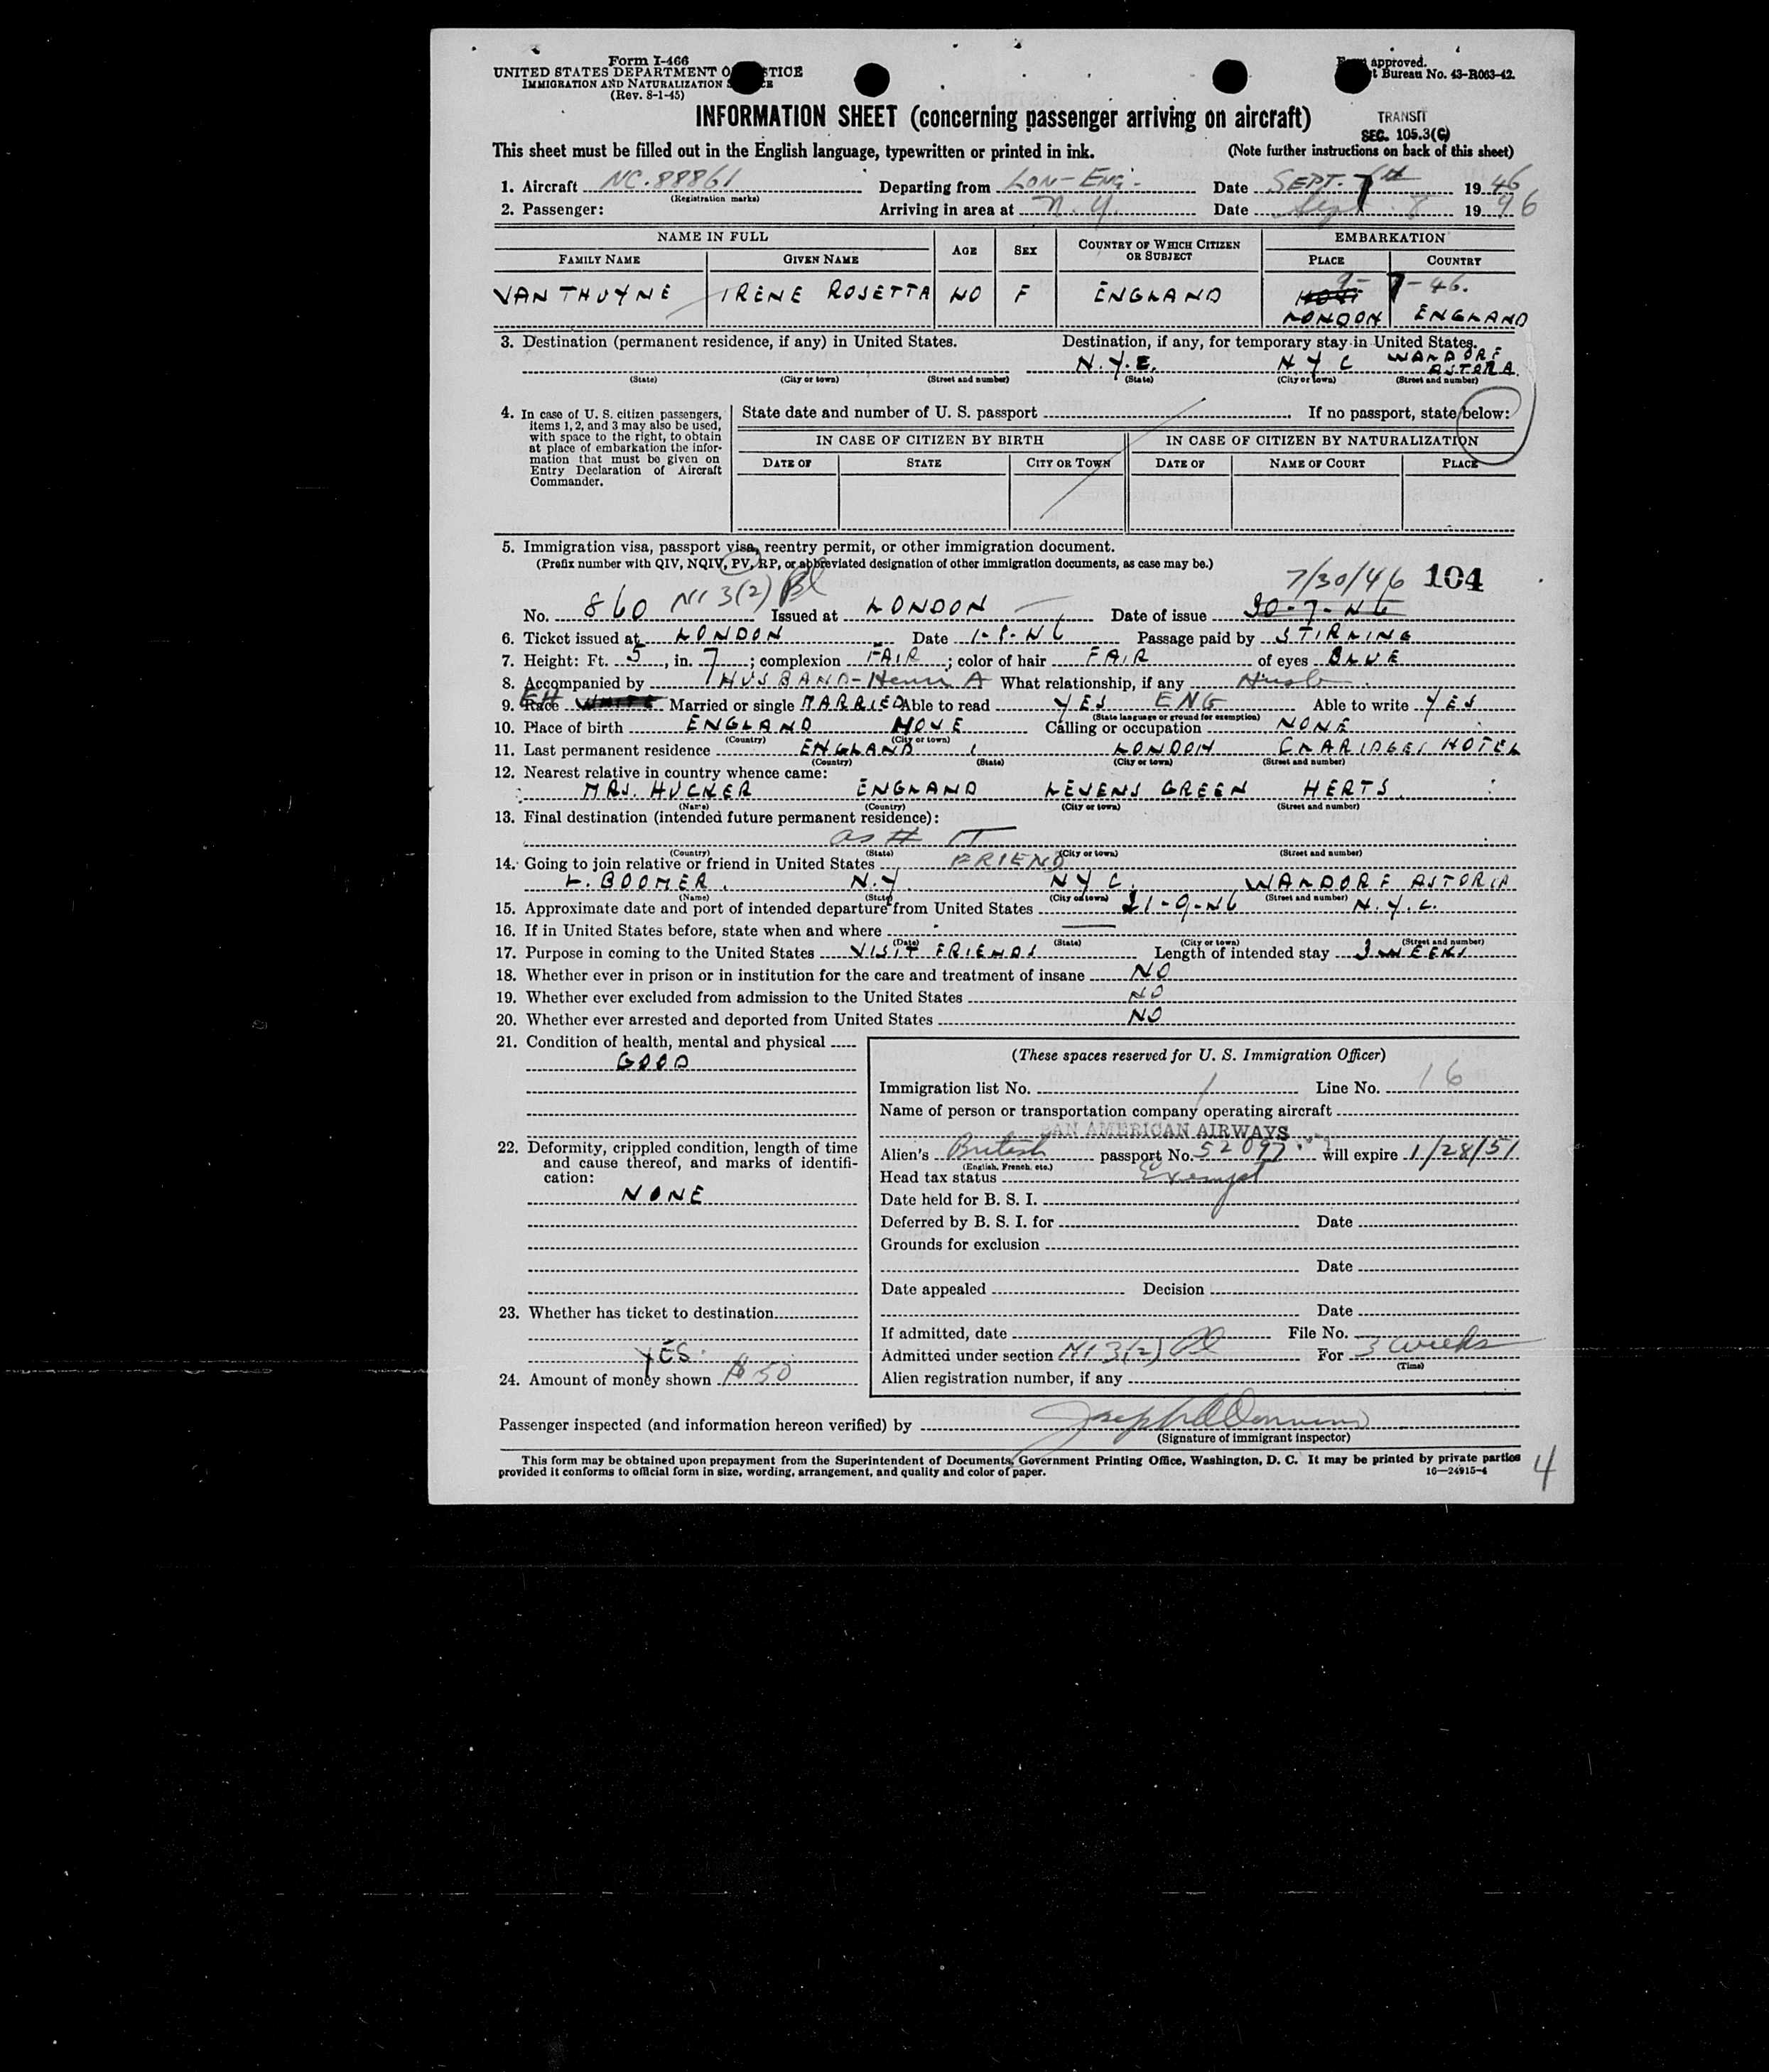 Form I-466
UNITED STATES DEPARTMENT O STICE
IMMIGRATION AND NATURALIZATION S CE
(Rev. 8-1-45)
F approved.
t Bureau No. 43-R063-42.
INFORMATION SHEET (concerning passenger arriving on aircraft)
TRANSIT
SEC. 105.3(C)
This sheet must be filled out in the English language, typewritten or printed in ink. (Note further instructions on back of this sheet)
1. Aircraft NC.88861 Departing from LON-ENG. Date SEPT. 7th 1946
(Registration marks)
2. Passenger: Arriving in area at N.Y. Date Sept. 8 1946
NAME IN FULL AGE SEX COUNTRY OF WHICH CITIZEN OR SUBJECT EMBARKATION
FAMILY NAME GIVEN NAME PLACE COUNTRY
9-7-46.
VAN THUYNE IRENE ROSETTA 40 F ENGLAND
LONDON ENGLAND
3. Destination (permanent residence, if any) in United States. Destination, if any, for temporary stay in United States.
N.Y.E. N Y C WALDORF ASTORA.
(State) (City or town) (Street and number) (State) (City or town) (Street and number)
4. In case of U. S. citizen passengers, items 1, 2, and 3 may also be used, with space to the right, to obtain at place of embarkation the information that must be given on Entry Declaration of Aircraft Commander.
State date and number of U. S. passport If no passport, state below:
IN CASE OF CITIZEN BY BIRTH IN CASE OF CITIZEN BY NATURALIZATION
DATE OF STATE CITY OR TOWN DATE OF NAME OF COURT PLACE
5. Immigration visa, passport visa, reentry permit, or other immigration document.
(Prefix number with QIV, NQIV, PV, RP, or abbreviated designation of other immigration documents, as case may be.)
7/30/46 104
No. 860 NI 3(2) Pl Issued at LONDON Date of issue 30-7-46
6. Ticket issued at LONDON Date 1-8-46 Passage paid by STIRLING
7. Height: Ft. 5, in. 7; complexion FAIR; color of hair FAIR of eyes BLUE
8. Accompanied by HUSBAND-Henri A What relationship, if any Husb.
9. Race WHITE Married or single MARRIED Able to read YES ENG Able to write YES
(State language or ground for exemption)
10. Place of birth ENGLAND HOVE Calling or occupation NONE
(Country) (City or town)
11. Last permanent residence ENGLAND LONDON CLARIDGES HOTEL
(Country) (State) (City or town) (Street and number)
12. Nearest relative in country whence came:
MRS. HUCKER ENGLAND LEVENS GREEN HERTS.
(Name) (Country) (City or town) (Street and number)
13. Final destination (intended future permanent residence):
as # 11
(Country) (State) (City or town) (Street and number)
14. Going to join relative or friend in United States FRIEND
L. BOOMER. N.Y. NYC. WALDORF ASTORIA
(Name) (State) (City or town) (Street and number)
15. Approximate date and port of intended departure from United States 21-9-46 N.Y.C.
16. If in United States before, state when and where
(Date) (State) (City or town) (Street and number)
17. Purpose in coming to the United States VISIT FRIENDS Length of intended stay 3 WEEKS
18. Whether ever in prison or in institution for the care and treatment of insane NO
19. Whether ever excluded from admission to the United States NO
20. Whether ever arrested and deported from United States NO
21. Condition of health, mental and physical
GOOD
22. Deformity, crippled condition, length of time and cause thereof, and marks of identification:
NONE
23. Whether has ticket to destination
YES.
24. Amount of money shown $50
(These spaces reserved for U. S. Immigration Officer)
Immigration list No. 1 Line No. 16
Name of person or transportation company operating aircraft
PAN AMERICAN AIRWAYS
Alien's British passport No. 52097 will expire 1/28/51
(English, French, etc.)
Head tax status Exempt
Date held for B. S. I.
Deferred by B. S. I. for Date
Grounds for exclusion
Date
Date appealed Decision
Date
If admitted, date File No.
Admitted under section NI 3(2) Pl For 3 weeks
(Time)
Alien registration number, if any
Passenger inspected (and information hereon verified) by
(Signature of immigrant inspector)
This form may be obtained upon prepayment from the Superintendent of Documents, Government Printing Office, Washington, D. C. It may be printed by private parties
provided it conforms to official form in size, wording, arrangement, and quality and color of paper. 16—24915-4
4